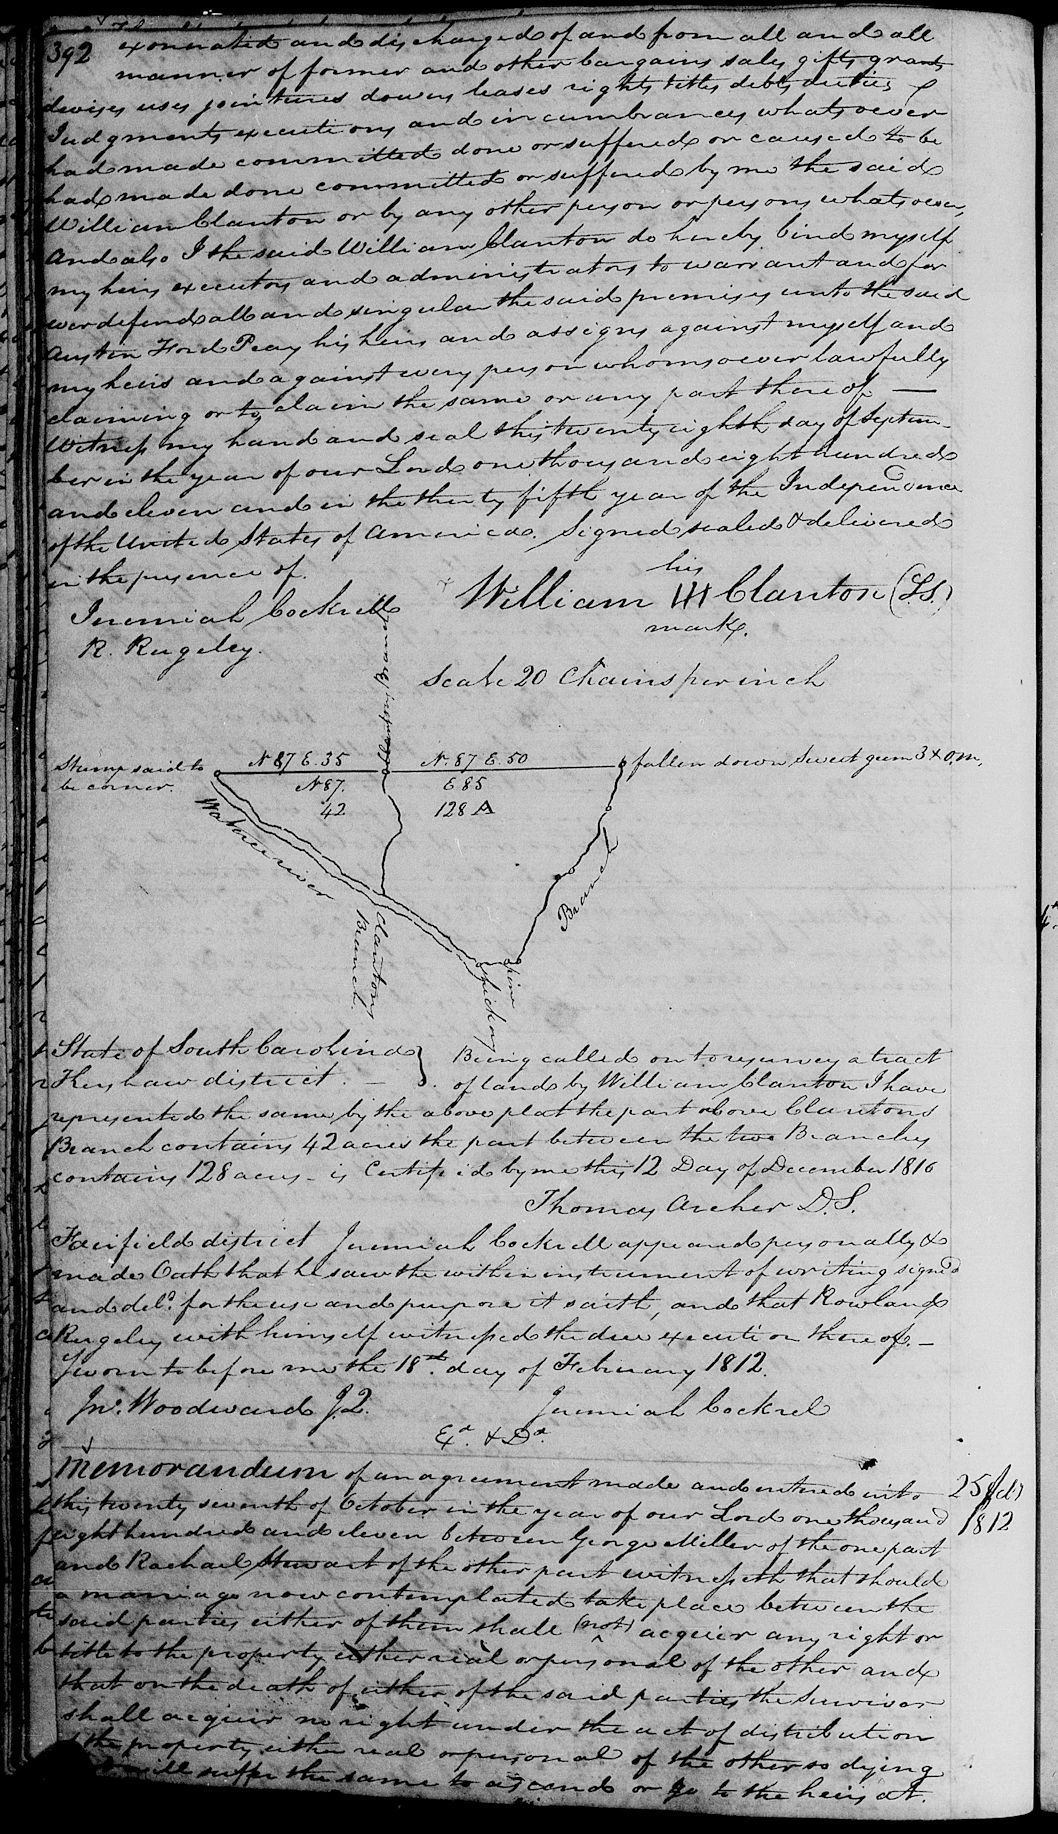 392 exonerated and discharged of and from all and all
manner of former and other bargains sales gifts grants
devises uses jointures dowers leases rights titles debts duties &
Judgments executions and incumbrances whatsoever
had made committed done or suffered or caused to be
had made done committed or suffered by me the said
William Clanton or by any other person or persons whatsoever,
And also I the said William Clanton do hereby bind myself
my heirs executors and administrators to warrant and for
ever defend all and singular the said premises unto the said
Austin Ford Peay his heirs and assigns against myself and
my heirs and against every person whomsoever lawfully
claiming or to claim the same or any part thereof —
Witness my hand and seal this twenty eighth day of Septem-
ber in the year of our Lord one thousand eight hundred
and eleven and in the thirty fifth year of the Independence
of the United States of America. Signed sealed & delivered
in the presence of.
his
Jeremiah Cockrell William HH Clanton (L.S.)
mark.
R. Rugeley.
Scale 20 Chains per inch
Branch
Stump said to
be corner.
N 87 E. 35
N. 87 E. 50
fallen down Sweet gum 3 X O.m,
N 87.
E 85
42
128 A
Wateree river
Branch
Clantons
Branch.
pine
hickory
State of South Carolina } Being called on to resurvey a tract
Kershaw district. — } of land by William Clanton I have
represented the same by the above plat the part above Clantons
Branch contains 42 acres the part between the two Branches
contains 128 acres - is Certified by me this 12 Day of December 1810
Thomas Archer D.S.
Fairfield district Jeremiah Cockrell appeared personally &
made Oath that he saw the within instrument of writing signed
and deld. for the use and purpose it saith, and that Rowland
Rugeley with himself witnessed the due execution thereof. —
Sworn to before me the 18th. day of February 1812.
Jno. Woodward J.Q. Jeremiah Cockrel
Exd. & Dd.
Memorandum of an agreement made and entered into
25 Feb
1812
this twenty seventh of October in the year of our Lord one thousand
eight hundred and eleven between George Miller of the one part
and Rachael Stewart of the other part witnesseth that should
a marriage now contemplated take place between the
said parties either of them shall (not) acquier any right or
title to the property either real or personal of the other and
that on the death of either of the said parties the Survivor
shall acquier no right under the act of distribution
the property either real or personal of the other so dying
will suffer the same to descend or go to the heirs at.